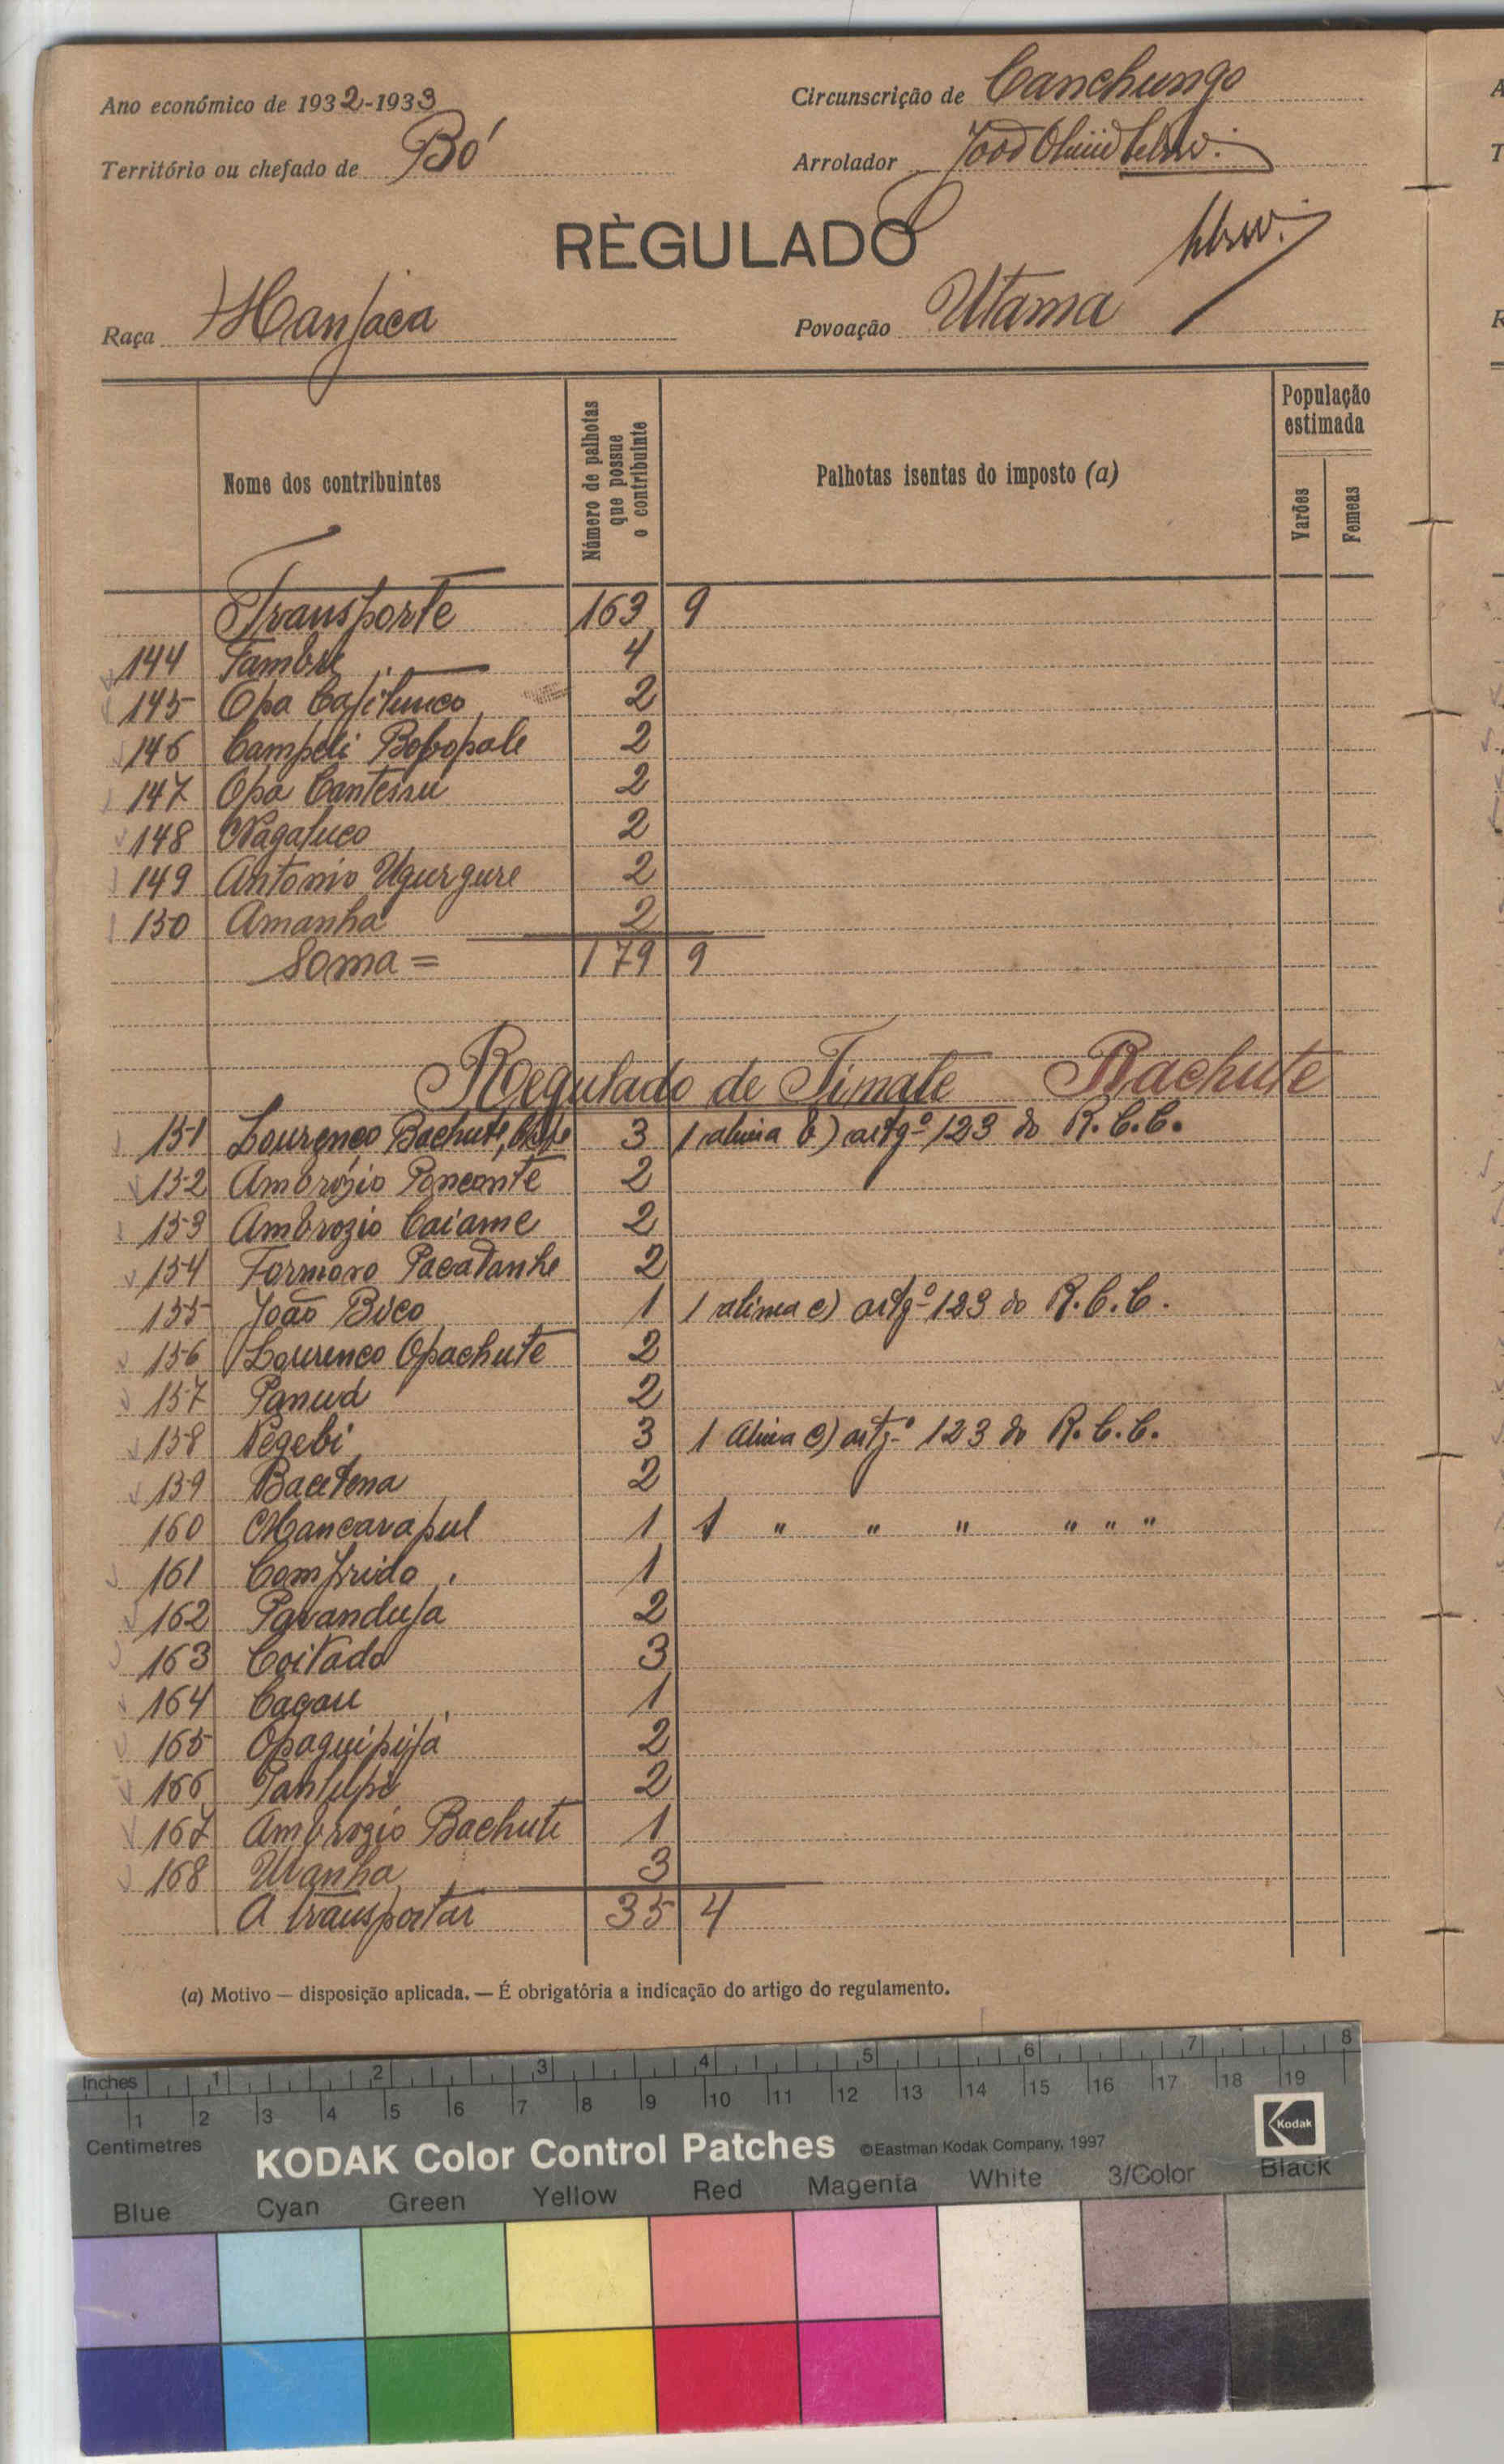 Ano económico de 1932-1933
Circunscrição de Canchungo
Território ou chefado de Bó
Arrolador
RÈGULADO
Raça Manjaca
Povoação Utama
Nome dos contribuintes
Número de palhotas que possue o contribuinte
Palhotas isentas do imposto (a)
População estimada
Varões
Femeas
Transporte 163 9
144 Tambu 4
145 Opa Cajitunco 2
146 Campeli Bobopale 2
147 Opa Cantessu 2
148 Nagaluco 2
149 Antonio Ugurgure 2
150 Amanha 2
Soma = 179 9
Regulado de Timate Bachute
151 Lourenço Bachute, 3 1 alinia b) artgº 123 do R.C.C.
152 Ambrózio Ponconte 2
153 Ambrozio Caiame 2
154 Formoso Pacatanhe 2
155 João Bico 1 1 alinea c) artgº 123 do R.C.C.
156 Lourenco Opachute 2
157 Panud 2
158 Negebi 3 1 alinia c) artgº 123 do R.C.C.
159 Bacetena 2
160 Mancarapul 1 1 " " " " " "
161 Comprido 1
162 Pavanduja 2
163 Coitado 3
164 Cagau 1
165 Opaquipija 2
166 Pantupi 2
167 Ambrozio Bachute 1
168 Utanha 3
A transportar 35 4
(a) Motivo — disposição aplicada. — É obrigatória a indicação do artigo do regulamento.
Inches 1 2 3 4 5 6 7 8
1 2 3 4 5 6 7 8 9 10 11 12 13 14 15 16 17 18 19
Centimetres
KODAK Color Control Patches ©Eastman Kodak Company, 1997 Kodak
Blue Cyan Green Yellow Red Magenta White 3/Color Black